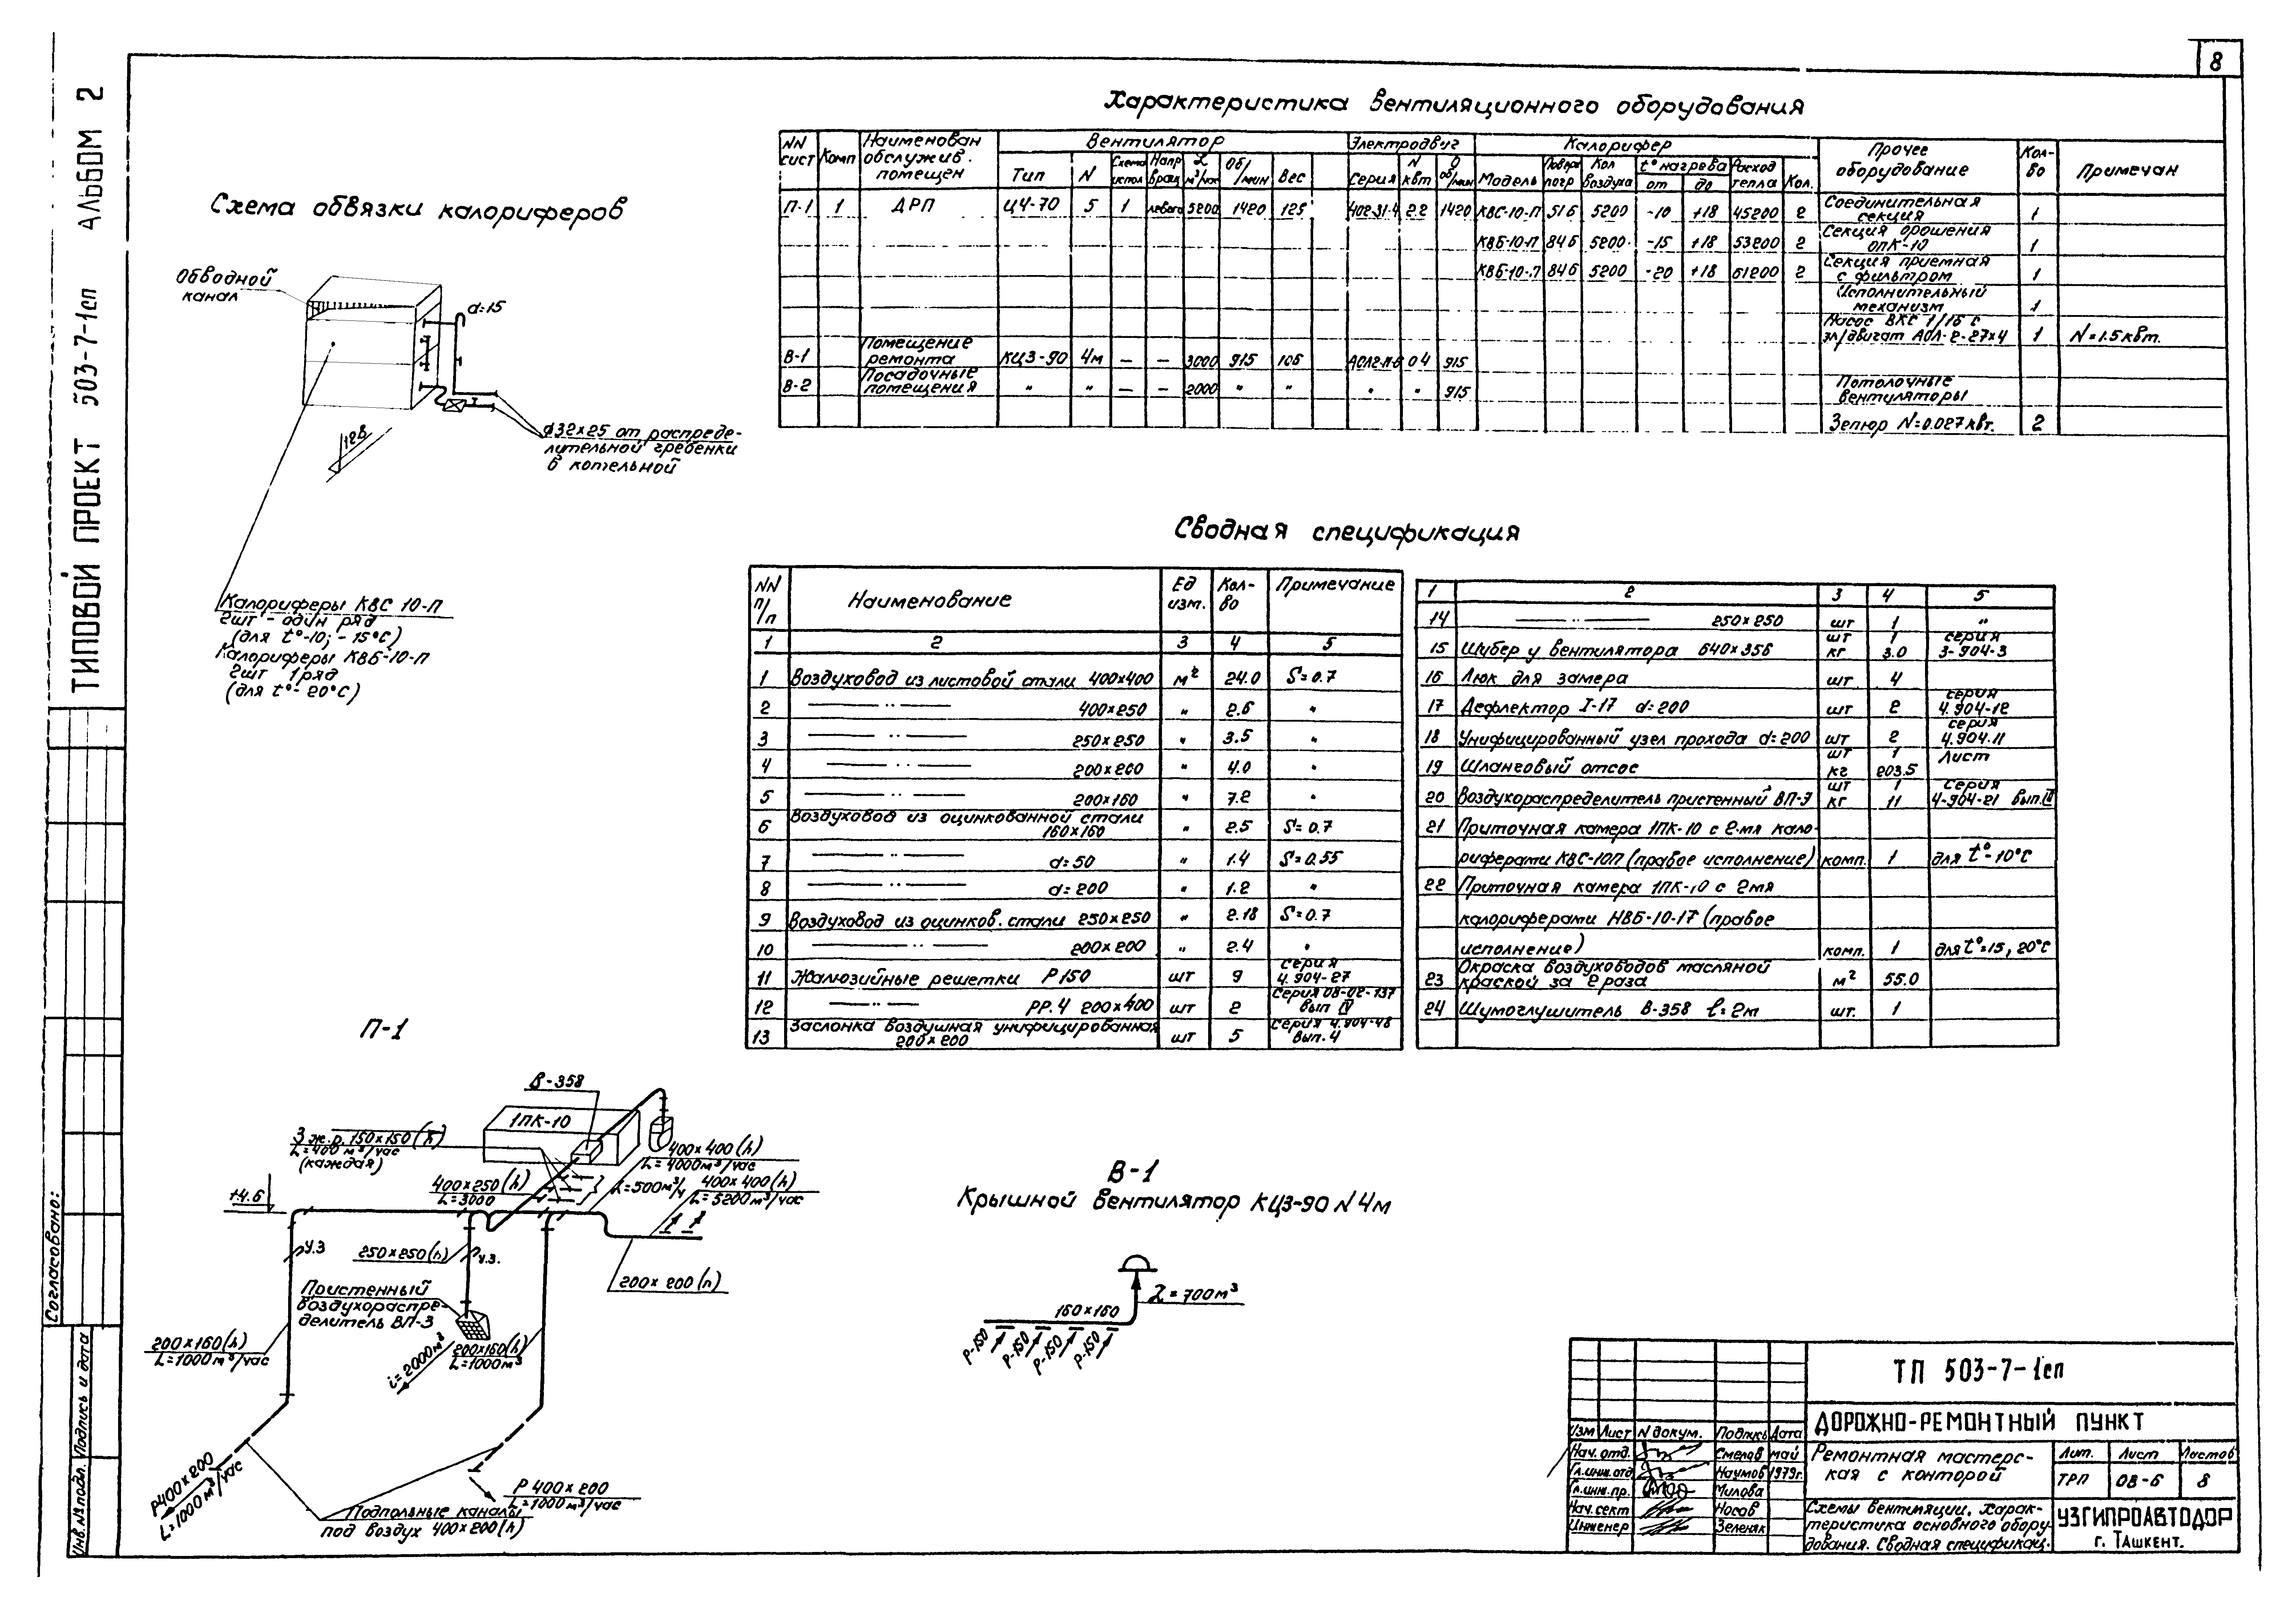 8
ТИПОВОЙ ПРОЕКТ 503-7-1сп АЛЬБОМ 2
Согласовано:
Инв. № подл. Подпись и дата
Схема обвязки калориферов
Обводной
канал
d=15
12В
ф32×25 от распреде-
лительной гребенки
в котельной
Калориферы КВС 10-П
2шт - один ряд
(для t°-10; -15°С)
Калориферы КВБ-10-П
2шт 1 ряд
(для t°- 20°С)
Характеристика вентиляционного оборудования
NN сист Комп Наименован обслужив. помещен Вентилятор Электродвиг Калорифер Прочее оборудование Кол-во Примечан
Тип N Схема испол Напр вращ L м³/час Об/мин Вес Серия N квт О об/мин Модель Поверх нагр Кол воздуха t° нагрева от до Расход тепла Кол.
П-1 1 ДРП Ц4-70 5 1 левого 5200 1420 125 402-31-4 2.2 1420 КВС-10-П 516 5200 -10 +18 45200 2 Соединительная секция 1
КВБ-10-П 846 5200 -15 +18 53200 2 Секция орошения ОПК-10 1
КВБ-10-П 846 5200 -20 +18 61200 2 Секция приемная с фильтром 1
Исполнительный механизм 1
Насос ВКС 1/16 с эл/двигат АОЛ-2-27×4 1 N=1.5квт.
В-1 Помещение ремонта КЦ3-90 4м — — 3000 915 106 АОЛ2-11-6 0 4 915
В-2 Посадочные помещения " " — — 2000 " " " " 915 Потолочные вентиляторы
Зепюр N=0.027квт. 2
Сводная спецификация
NN п/п Наименование Ед изм. Кол-во Примечание
1 2 3 4 5
1 Воздуховод из листовой стали 400×400 м² 24.0 S=0.7
2 — " — 400×250 " 2.6 "
3 — " — 250×250 " 3.5 "
4 — " — 200×200 " 4.0 "
5 — " — 200×160 " 7.2 "
6 Воздуховод из оцинкованной стали 160×160 " 2.5 S=0.7
7 — " — d=50 " 1.4 S=0.55
8 — " — d=200 " 1.2 "
9 Воздуховод из оцинков. стали 250×250 " 2.18 S=0.7
10 — " — 200×200 " 2.4 "
11 Жалюзийные решетки Р150 шт 9 серия 4.904-27
12 — " — РР.4 200×400 шт 2 Серия 08-02-137 вып IV
13 Заслонка воздушная унифицированная 200×200 шт 5 Серия 4.904-48 вып.4
1 2 3 4 5
14 — " — 250×250 шт 1 "
15 Шибер у вентилятора 640×356 шт кг 1 3.0 серия 3-904-3
16 Люк для замера шт 4
17 Дефлектор I-17 d=200 шт 2 серия 4.904-12
18 Унифицированный узел прохода d=200 шт 2 серия 4.904.11
19 Шланговый отсос шт кг 1 203.5 Лист
20 Воздухораспределитель пристенный ВП-3 шт кг 1 11 Серия 4-904-21 вып.II
21 Приточная камера 1ПК-10 с 2-мя кало-
риферами КВС-10П (правое исполнение) комп. 1 для t°-10°С
22 Приточная камера 1ПК-10 с 2мя
калориферами НВБ-10-17 (правое
исполнение) комп. 1 для t°=15, 20°С
23 Окраска воздуховодов масляной краской за 2 раза м² 55.0
24 Шумоглушитель В-358 ℓ=2м шт. 1
П-1
В-358
1ПК-10
3 ж.р. 150×150 (h)
L=400 м³/час
(каждая)
400×400 (h)
L=4000м³/час
400×250 (h)
L=3000
L=500м³/ч
400×400(h)
L=5200м³/час
+4.6
У.З
250×250(h)
У.З.
200×200(h)
Пристенный
воздухораспре-
делитель ВП-3
L=2000м³
200×160(h)
L=1000м³/час
200×160(h)
L=1000м³
Р400×200
L=1000м³/час
Р 400×200
L=1000м³/час
Подпольные каналы
под воздух 400×200(h)
В-1
Крышной вентилятор КЦ3-90 N4м
L=700м³
160×160
Р-150 Р-150 Р-150 Р-150
ТП 503-7-1сп
ДОРОЖНО-РЕМОНТНЫЙ ПУНКТ
Изм Лист N докум. Подпись Дата
Нач. отд. Смелов май
Гл.инж.отд Наумов 1979г.
Гл.инж.пр. Милова
Нач.сект Носов
Инженер Зеленяк
Ремонтная мастерс-
кая с конторой
Лит. Лист Листов
ТРП ОВ-6 8
Схемы вентиляции. Харак-
теристика основного обору-
дования. Сводная спецификац.
УЗГИПРОАВТОДОР
г. Ташкент.